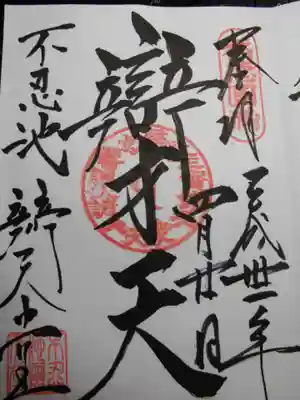 奉拝
平成卅一年
四月廿日
辯才天
不忍池 辯天堂